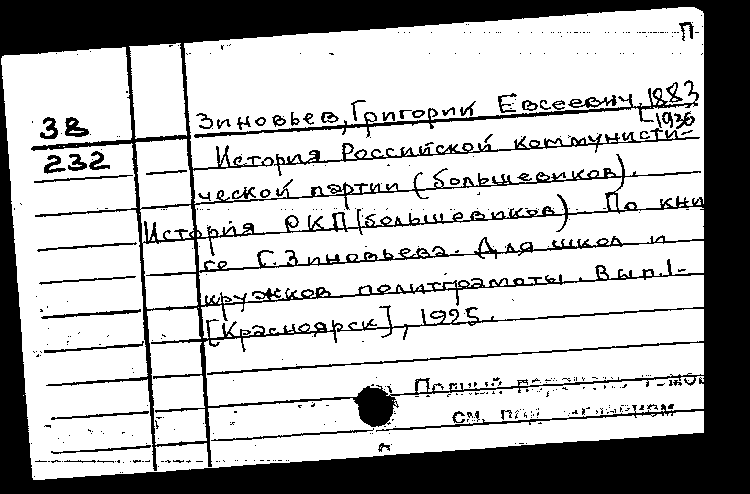 П
38
232
Зиновьев, Григорий Евсеевич, 1883
-1936
История Российской коммунисти-
ческой партии (большевиков).
История РКП(большевиков) По кни
ге Г. Зиновьева. Для школ и
кружков политграмоты. Вып.1-
[Красноярск], 1925.
Полный перечень томов
см. под